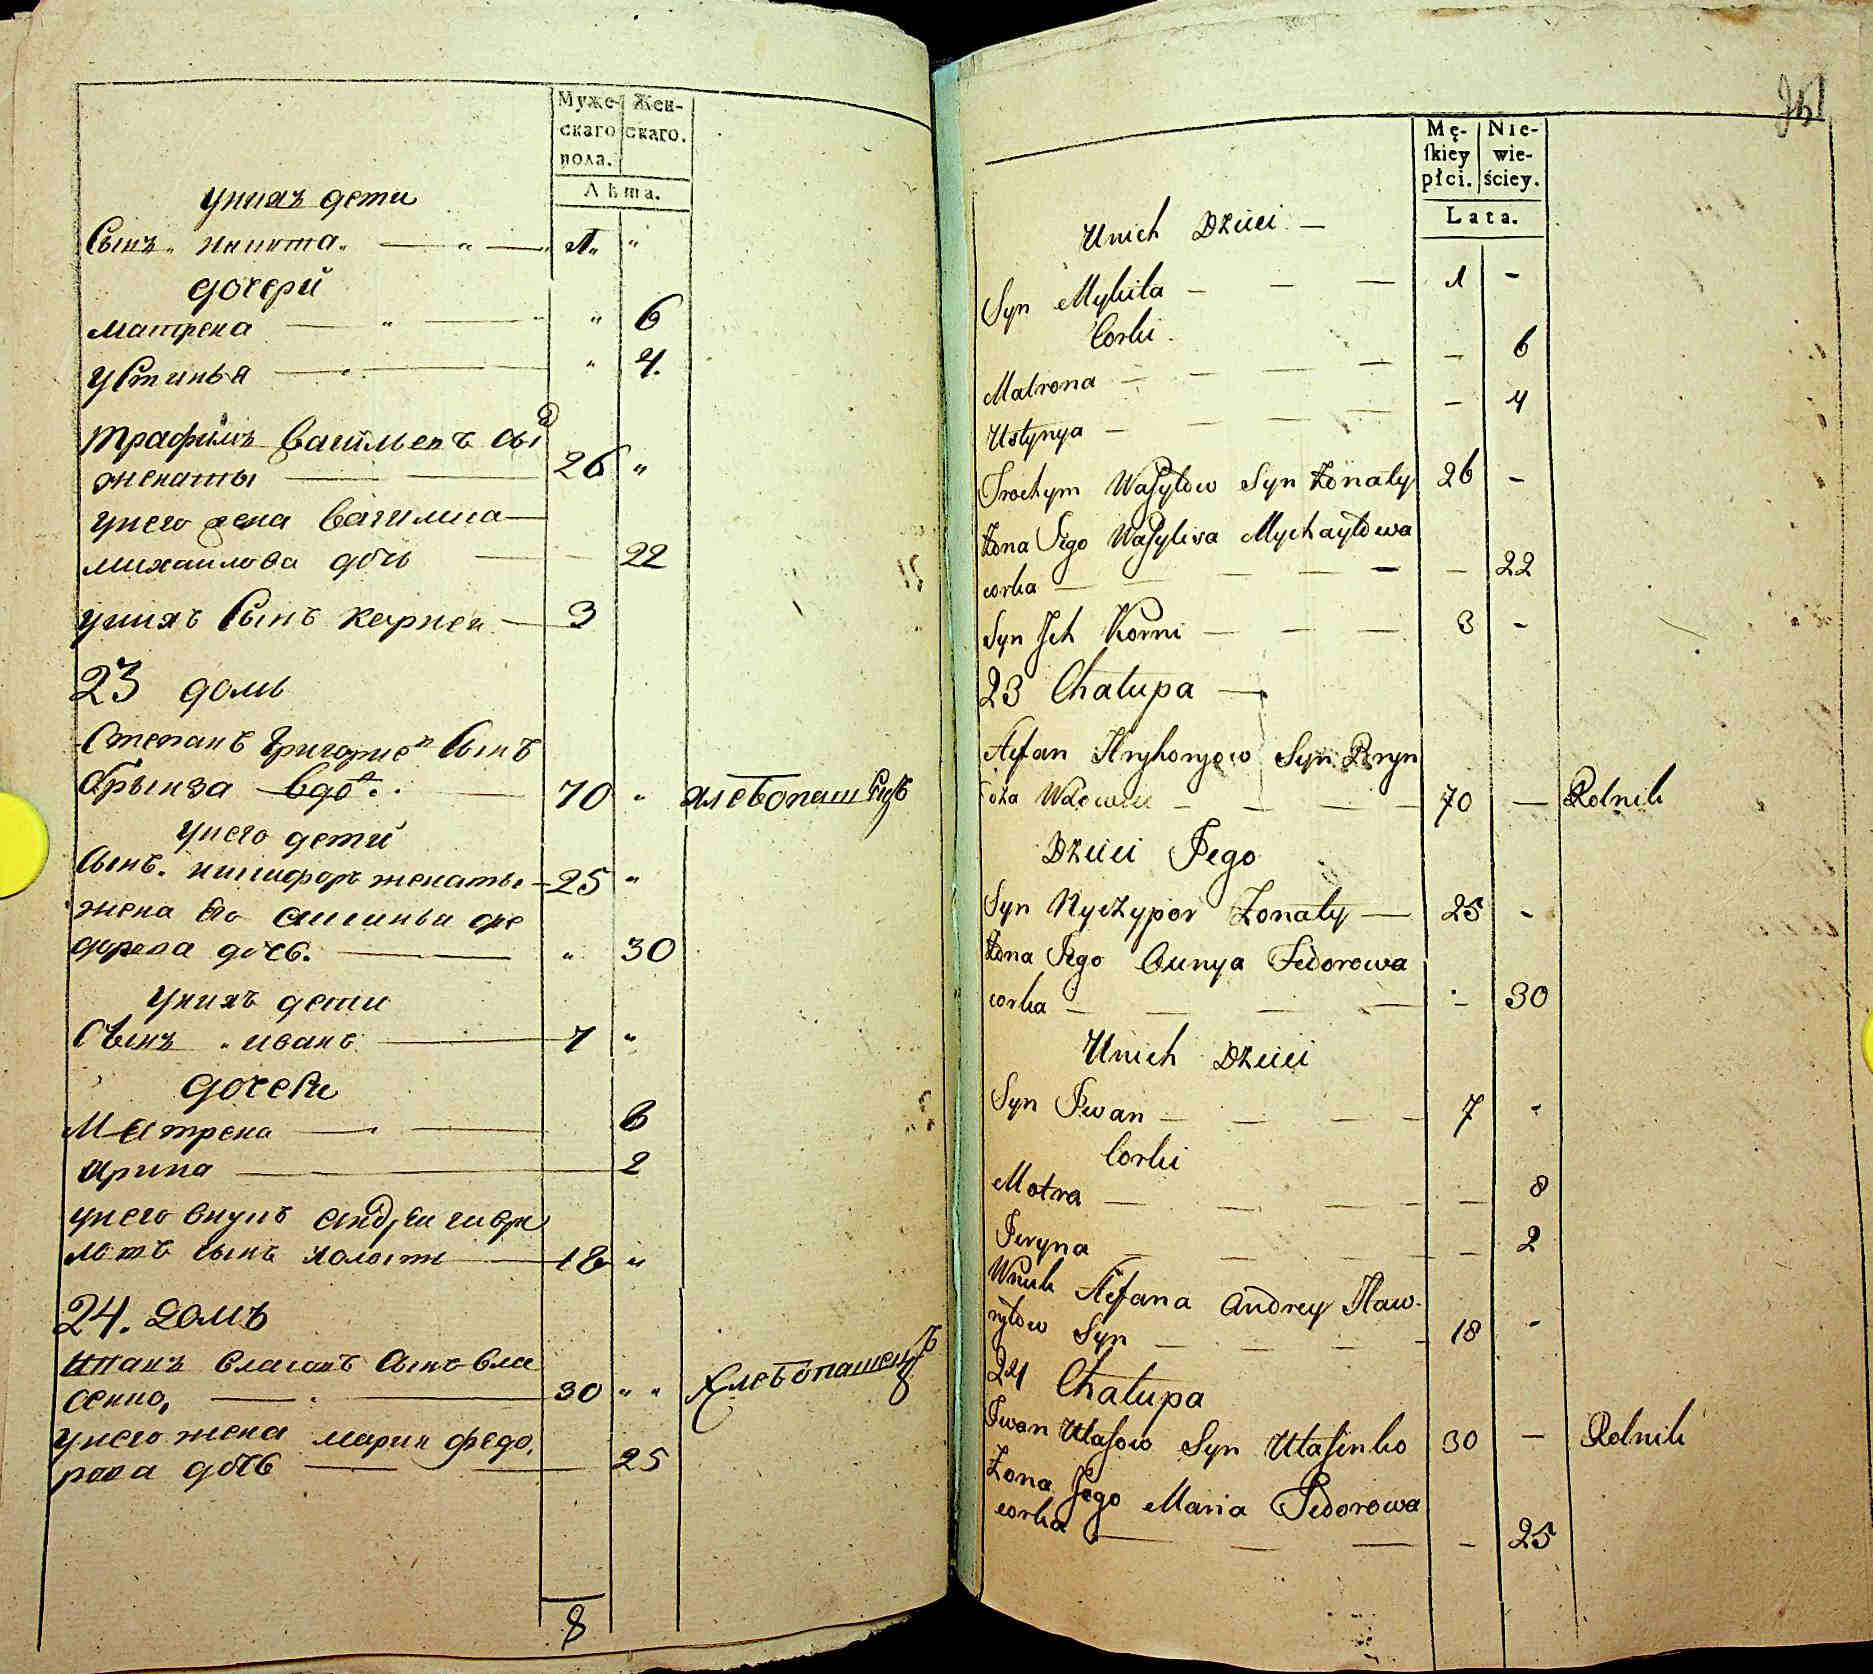 Муже-
скаго
пола.
Жен-
скаго.
Лѣта.
уних дети
Сынъ никита 1
дочери
матрена 6
устинья 4.
трафимъ васильевъ сынъ
женаты 26
унего жена василиса
михаилова дочь 22
унихъ сынъ карней 3
23 домъ
Степанъ Григориевъ сынъ
брынза вдовъ 70 хлебопашецъ
унего дети
сынъ. никифоръ женаты 25
жена его
дочь. 30
унихъ дети
Сынъ иванъ 7
дочери
Матрена 6
ирина 2
унего внукъ андреи гаври
ловъ сынъ холосты 18
24. домъ
иванъ власовъ сынъ вла
сенко, 30 хлебопашецъ
унего жена мария федо,
рова дочь 25
8
251
Mę-
ſkiey
płci.
Nie-
wie-
ściey.
Lata.
Unich Dzieci —
Syn Mykita — — — 1 -
Corki
Matrona — — — — — 6
Ustynya — — — — — 4
Trochym Wasylow Syn Żonaty 26 -
Żona Jego Wasylisa Mychayłowa
corka — — — — — 22
Syn Jch Korni — — — 3 -
23 Chałupa —
Stefan Hryhoryow Syn Bryn
oza Wdowiec — — — 70 — Rolnik
Dzieci Jego
Syn Nyczypor Żonaty — 25 -
Żona Jego Fedorowa
corka — — — — - 30
Unich Dzieci
Syn Jwan — — — — 7 -
Corki
Motra — — — — — 8
Jeryna — — — — — 2
Wnuk Stefana Andrey Haw-
ryłow Syn — — — — 18 -
24 Chałupa
Jwan Ułasow Syn Ułasenko 30 — Rolnik
Żona Jego Maria Fedorowa
corka — — — — 25